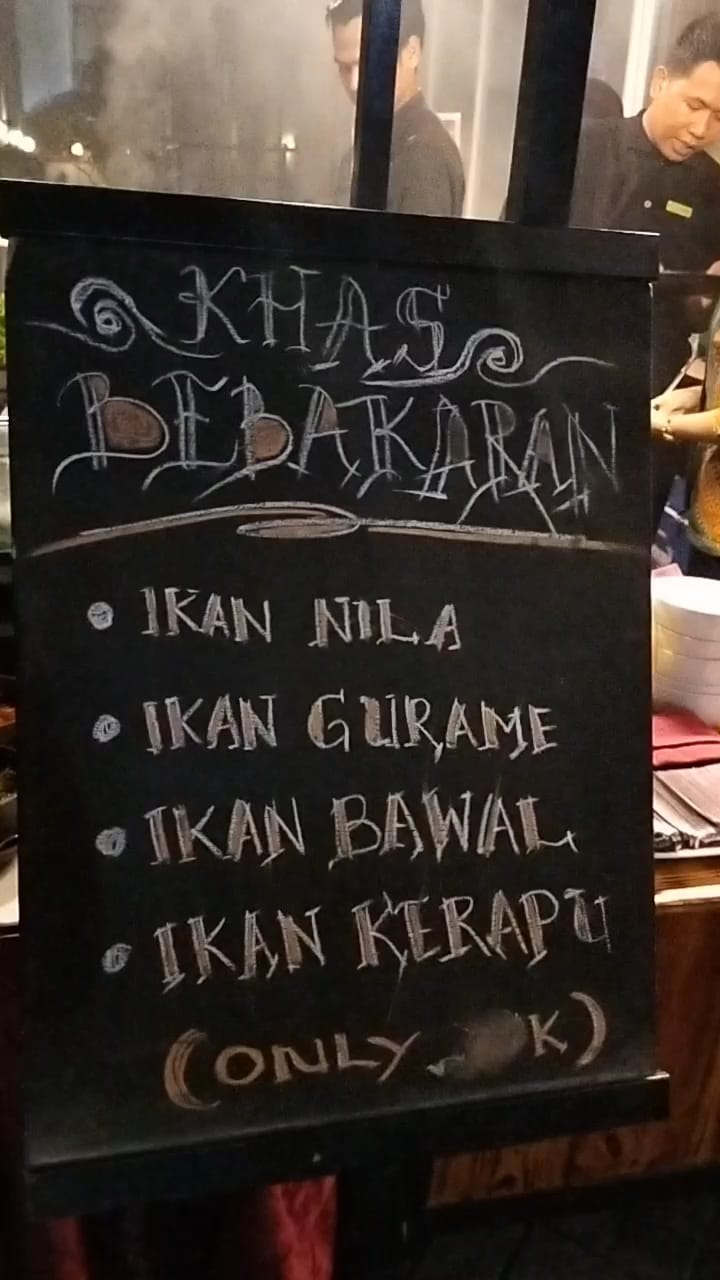 KHAS
BEBAKARAN
• IKAN NILA
• IKAN GURAME
• IKAN BAWAL
• IKAN KERAPU
(ONLY K)